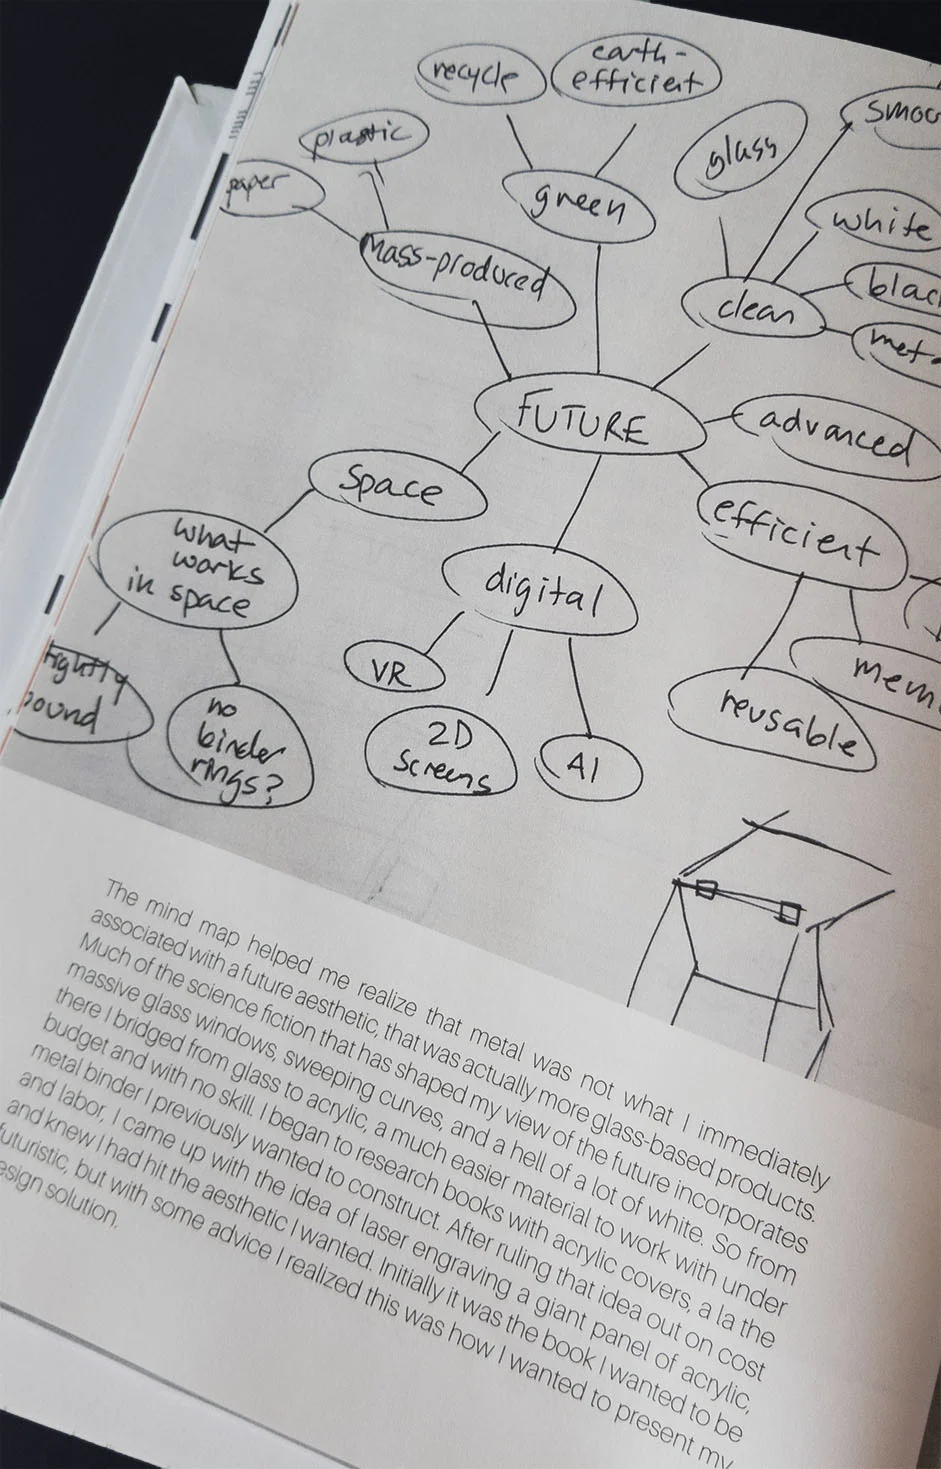 earth-
efficient
recycle
smoo
plastic
glass
paper
green
white
mass-produced
clean
blac
met
FUTURE
advanced
space
efficient
what
works
in space
digital
VR
mem
tightly
bound
no
binder
rings?
2D
screens
AI
reusable
The mind map helped me realize that metal was not what I immediately
associated with a future aesthetic, that was actually more glass-based products.
Much of the science fiction that has shaped my view of the future incorporates
massive glass windows, sweeping curves, and a hell of a lot of white. So from
there I bridged from glass to acrylic, a much easier material to work with under
budget and with no skill. I began to research books with acrylic covers, a la the
metal binder I previously wanted to construct. After ruling that idea out on cost
and labor, I came up with the idea of laser engraving a giant panel of acrylic,
and knew I had hit the aesthetic I wanted. Initially it was the book I wanted to be
futuristic, but with some advice I realized this was how I wanted to present my
esign solution.